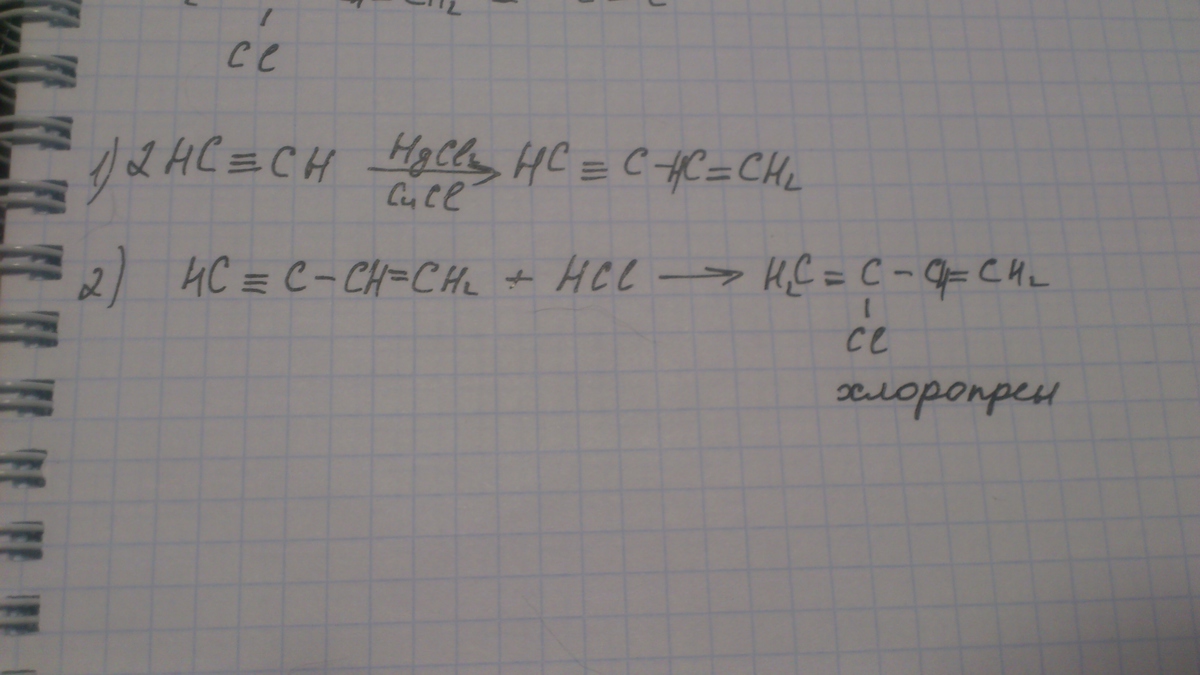 Cl
1) 2HC≡CH HgCl₂ CuCl → HC≡C-HC=CH₂
2) HC≡C-CH=CH₂ + HCl → H₂C=C-CH=CH₂
Cl
хлоропрен